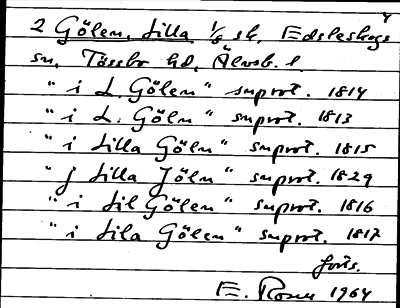 2 Gölen, Lilla 1/6 sk, Edsleskogs
sn. Tössbo hd. Älvsb. l
"i L. Gölen" snprot. 1814
"i L. Göln" snprot. 1813
"i Lilla Göln" snprot. 1815
"j Lilla Jöln" snprot. 1829
"i Lil Gölen" snprot. 1816
"i Lila Gölen" snprot. 1817
forts.
E. Rosen 1964